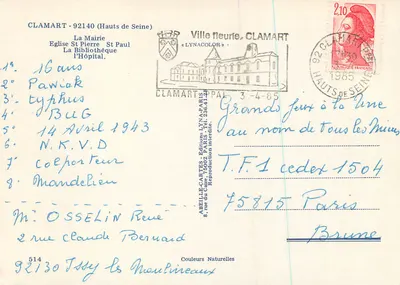 CLAMART - 92140 (Hauts de Seine)
La Mairie
Eglise St Pierre St Paul
La Bibliothèque
l'Hôpital.
Ville fleurie, CLAMART
«LYNACOLOR»
CLAMART PAL 3-4-85
92 CLAMART
1985
HAUTS DE SEINE
2,10
1° 16 ans
2° Pawiak
3° typhus
4° BUG
5° 14 Avril 1943
6° N.K.V.D
7° colporteur
8 Mandelieu
Mr OSSELIN René
2 rue Claude Bernard
92130 Issy les Moulineaux
514
Couleurs Naturelles
ABEILLE-CARTES - Editions LYNA-PARIS
Reproduction interdite
Grands jeux à la une
au nom de tous les Miens
T.F.1 cedex 1504
75815 Paris
Brune